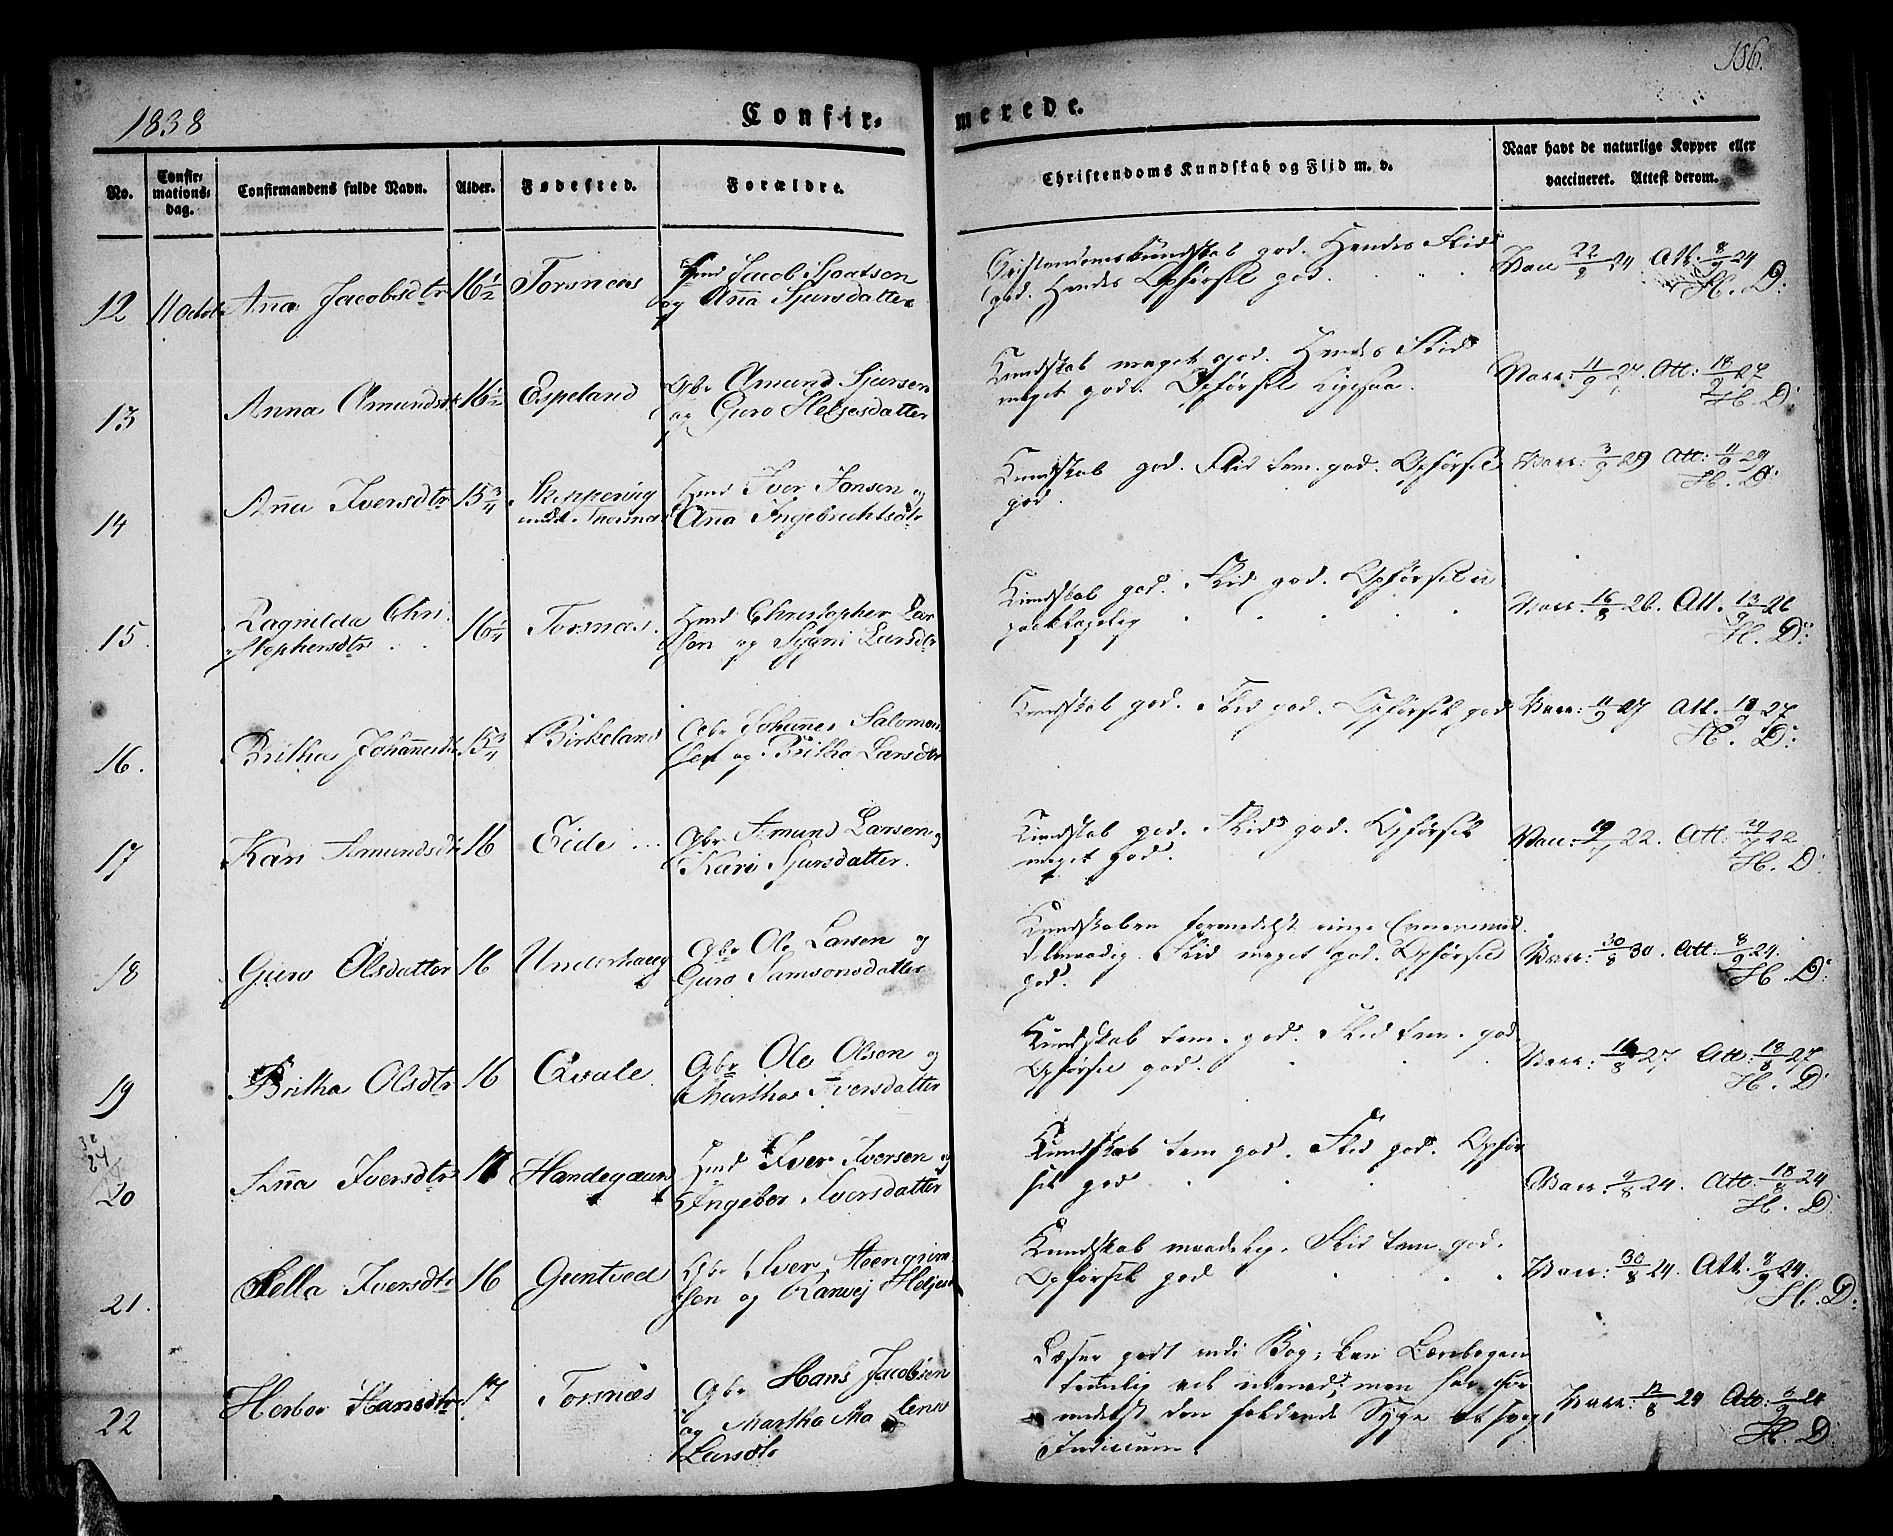 186.
1838
Confir-
merede.
No.
Confir-
mations-
dag.
Confirmandens fulde Navn.
Alder.
Fødested.
Forældre.
Christendoms Kundskab og Flid m. v.
Naar havt de naturlige Kopper eller
vaccineret. Attest derom.
12 11 Octob Aña Jacobsdtr 16 1/2 Torsnæs
Jacob
og Aña Sjursdatter
god. Hendes Flid
god. Hendes Opførsel god.
Vac 22/8 24 Att. 8/9 24
H. D:
13 Anna Amundsdtr 16 1/2 Espeland
Gbr Amund Sjursen
og Guro Helgesdatter
Kundskab meget god. Hendes Flid
meget god. Opførsel ligesaa.
Vacc: 11/9 27. Att: 18/9 27
H. D:
14 Aña Iversdtr 15 3/4 Skeppevig
Hmd Iver Jonsen og
Aña Ingebrichtsdtr
Kundskab god. Flid tem. god. Opførsel
god.
Vacc: 3/9 29 Att: 11/9 29
H. D:
15. Ragnilda Chri
stophersdtr 16 1/4 Torsnæs.
Hmd Christopher Lar
sen og Sygni Larsdtr
Kundskab god. Flid god. Opførsel u
paaklagelig
Vacc: 16/8 26. Att. 13/9 26
H. D:
16. Britha Johañesdtr 15 3/4 Birkeland
Gbr Johañes Salomon
sen og Britha Larsdtr
Kundskab god. Flid god. Opførsel god
Vacc: 11/9 27 Att. 27
H. D:
17 Kari Amundsdtr 16 Eide
Gbr Amund Larsen og
Kari Sjursdatter.
Kundskab god. Flid god. Opførsel
meget god.
Vacc: 22. Att: 22
H. D:
18 Guro Olsdatter 16 Underhaug
Gbr Ole Larsen og
Guro Samsonsdatter
Kundskaben formedelst ringe
Flid meget god. Opførsel
god.
Vacc: 30/8 30. Att: 8/9 24.
H. D:
19 Britha Olsdtr 16 Qvale.
Gbr Ole Olsen og
Martha Iversdatter
Kundskab tem. god. Flid tem. god
Opførsel god.
Vacc: 16/8 27 Att: 18/8 27
H. D:
20 Aña Iversdtr 17 Handegaard
Hmd Iver Iversen og
Ingebor Iversdatter
Kundskab tem god. Flid god. Opfør
sel god
Vacc: 9/8 24. Att: 18/8 24
H. D:
21. Sella Iversdtr 16 Guntved
Gbr Iver Steengrim
sen og Ranvej Heljesd
Kundskab maadelig. Flid tem. god.
Opførsel god
Vacc: 30/8 24. Att. 8/9 24.
H. D:
22 Herbor Hansdtr 17 Torsnæs
Gbr Hans Jacobsen
og Martha Ma lena
Larsdtr
Læser godt udi Bog, kan Lærebogen
temelig vel udenad, men har for
medelst den faldende Syge et svagt
Judicium.
Vacc: 12/8 24 Att: 8/9 24
H. D: